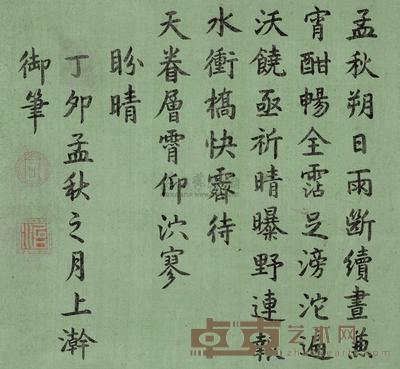 孟秋朔日雨斷續晝兼
宵酣暢全霑足滂沱遍
沃饒亟祈晴曝野連報
水衝橋快霽待
天眷層霄仰泬寥
盼晴
丁卯孟秋之月上澣
御筆
卓克艺术网